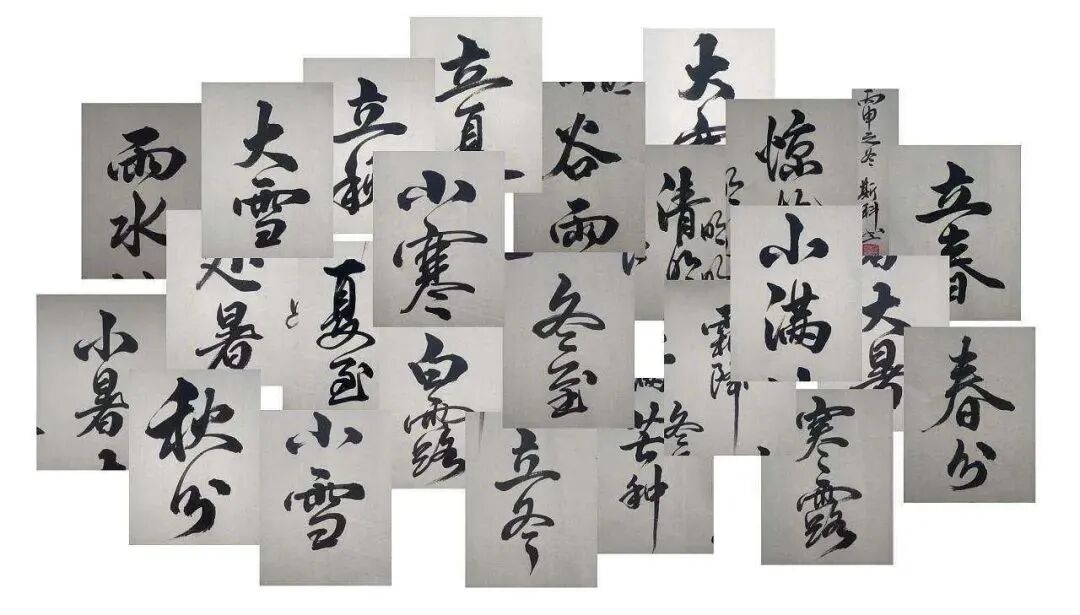 立夏
大
立秋
雨水
大雪
谷雨
惊
丙申之冬 斯科书
清明
立春
小寒
小满
处暑
夏至
冬至
霜降
大暑
小暑
白露
春分
秋分
小雪
立冬
芒种
冬
寒露